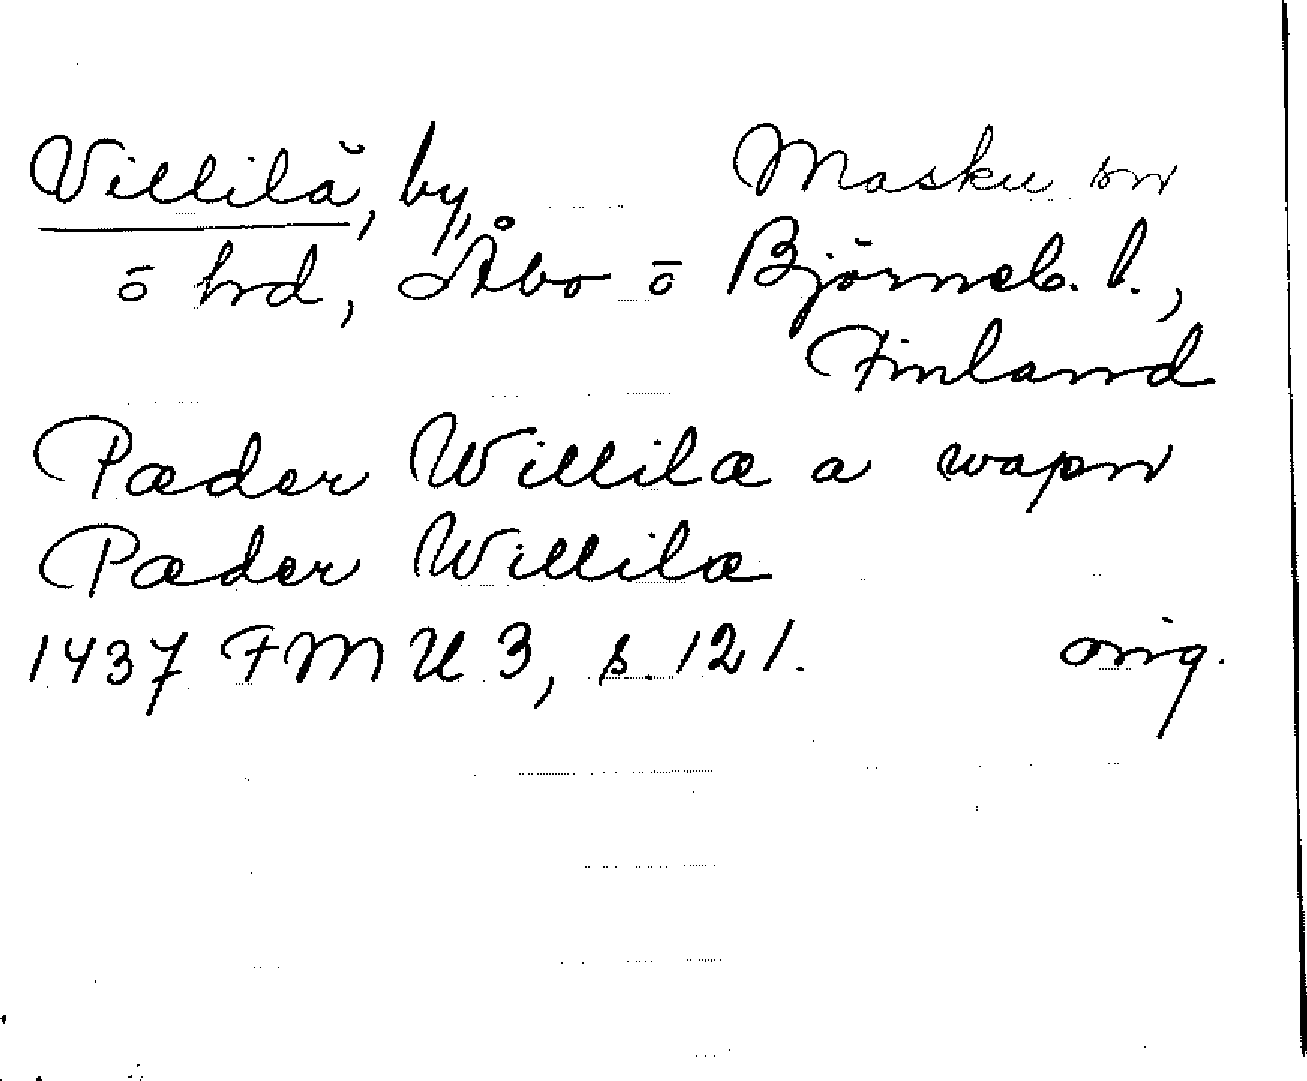 Villilä, by, Masku sn
o hrd, Åbo o Björneb. l.,
Finland
Pæder Willilæ a wapn
Pæder Willilæ
1437 FMU 3, s. 121. orig.